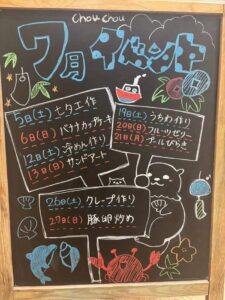 chou chou
7月イベント
5日(土)七夕工作
6日(日)バナナカップケーキ
12日(土)冷めん作り
13日(日)サンドアート
19日(土)うちわ作り
20日(日)フルーツゼリー
21日(月)プールびらき
26日(土)クレープ作り
27日(日)豚卵炒め